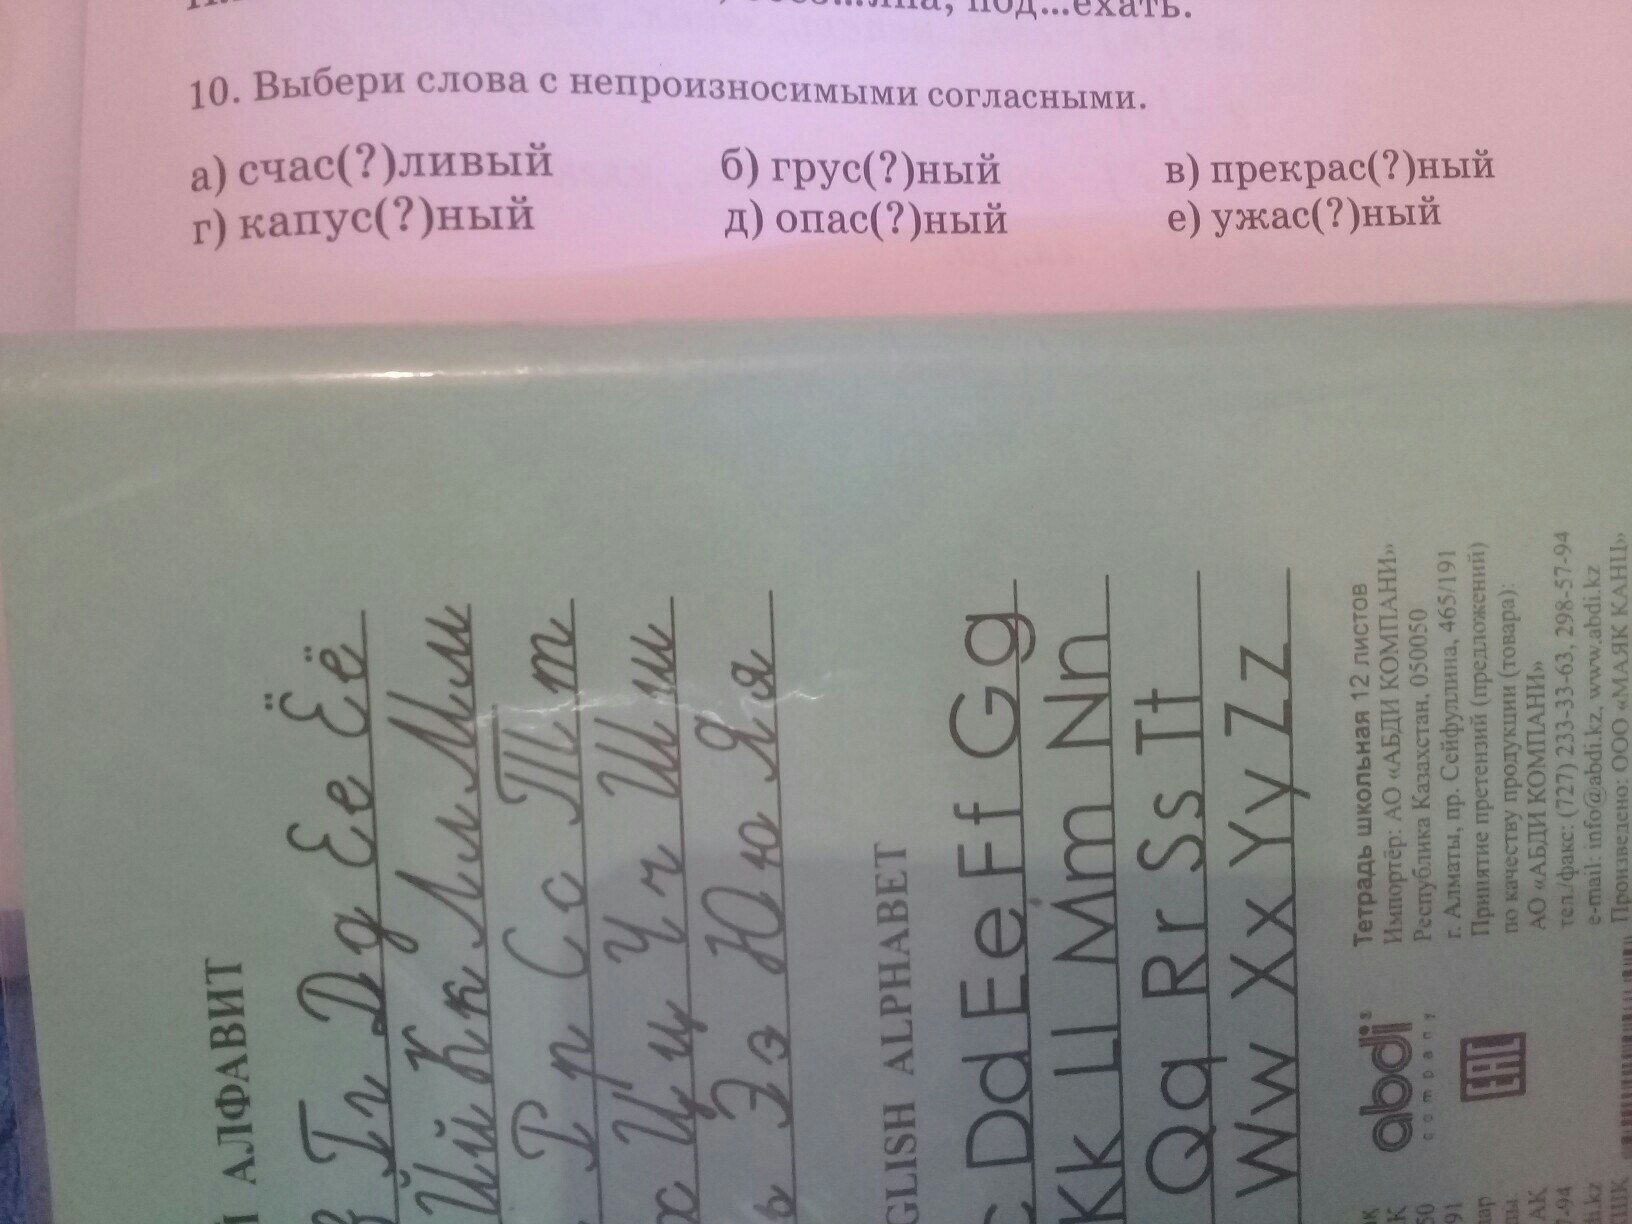 под...ехать.
10. Выбери слова с непроизносимыми согласными.
а) счас(?)ливый б) грус(?)ный в) прекрас(?)ный
г) капус(?)ный д) опас(?)ный е) ужас(?)ный
АЛФАВИТ
Гг Дд Ее Ёё
Ий Кк Лл Мм
Рр Сс Тт
Цц Чч Шш
Ээ Юю Яя
GLISH ALPHABET
Dd Ee Ff Gg
Kk Ll Mm Nn
Qq Rr Ss Tt
Ww Xx Yy Zz
abdi
company
EAC
Тетрадь школьная 12 листов
Импортёр: АО «АБДИ КОМПАНИ»
Республика Казахстан, 050050
г. Алматы, пр. Сейфуллина, 465/191
Принятие претензий (предложений)
по качеству продукции (товара):
АО «АБДИ КОМПАНИ»
тел./факс: (727) 233-33-63, 298-57-94
e-mail: info@abdi.kz, www.abdi.kz
Произведено: ООО «МАЯК КАНЦ»